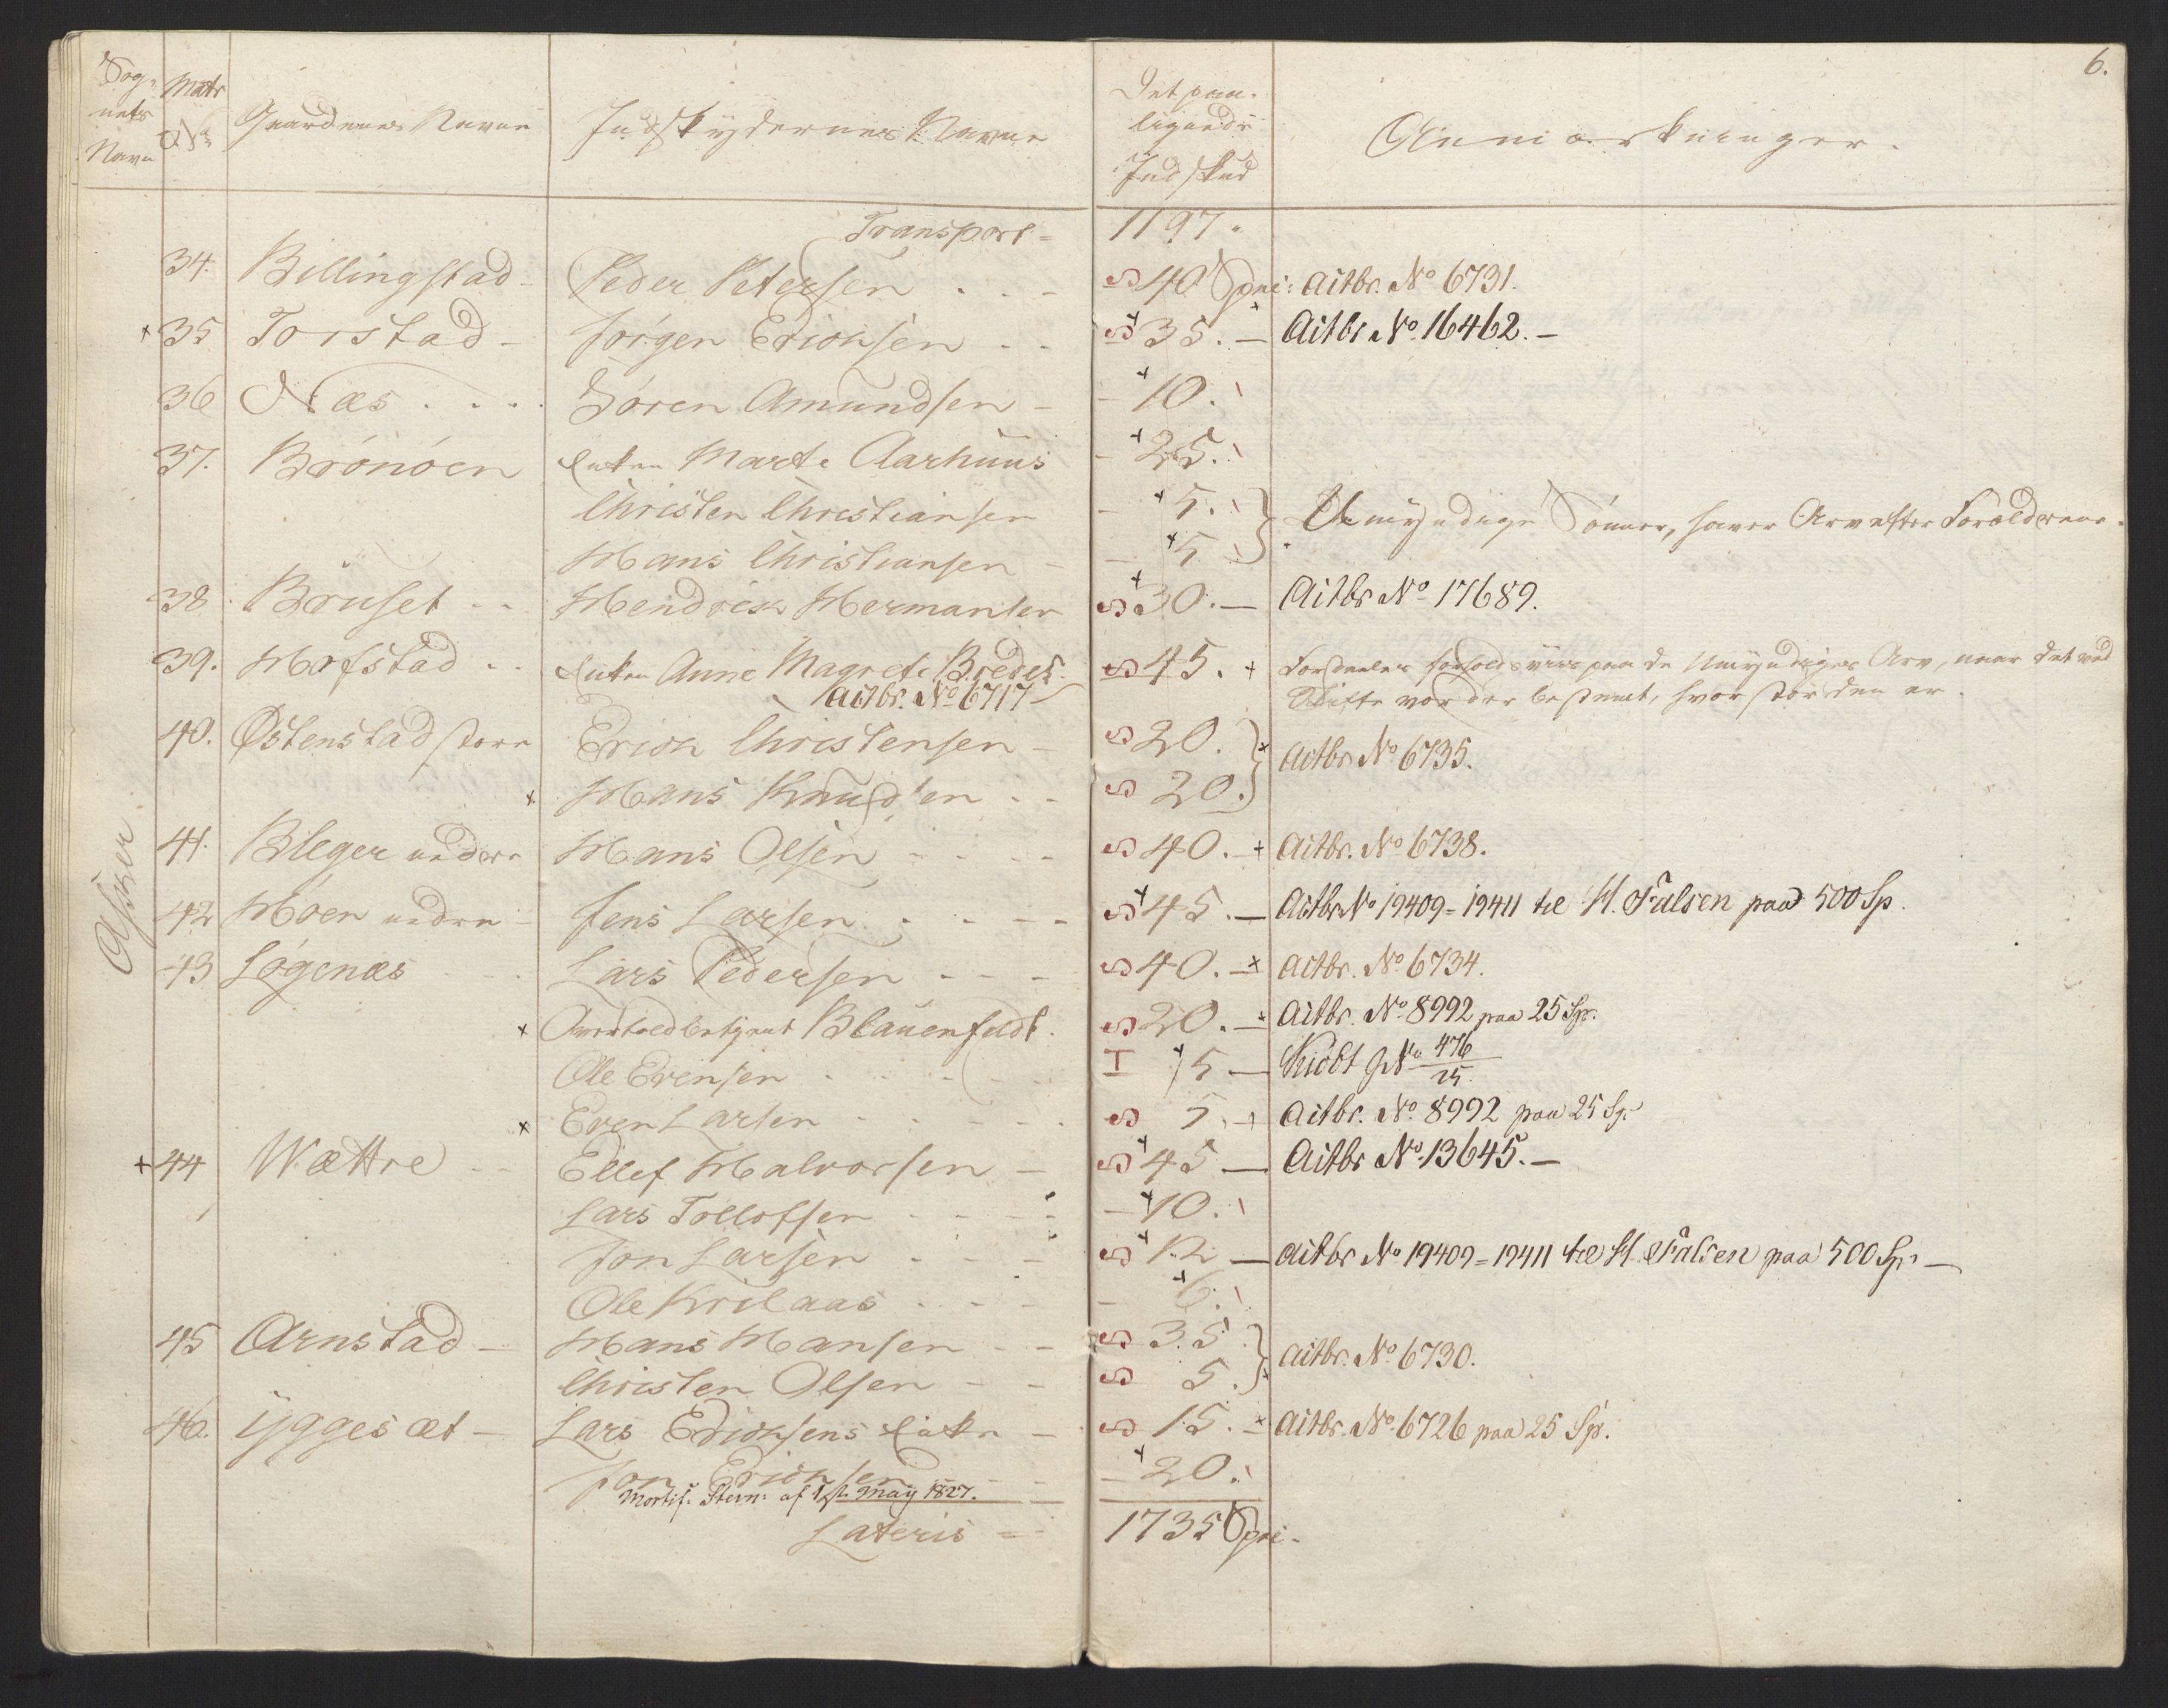 6.
Sognets Navn
Matr No
Gaardenes Navne
Indskydernes Navne
Det paaligende Indskud
Anmærkninger.
Asker
Transport = 1197.
34. Billingstad - Peder Petersen . . - S 40 Spci: Actbr. No 6731.
+ 35 Torstad - Jørgen Erichsen . . S + 35. - Actbr No 16462. -
36 Næs . . . . Søren Amundsen - - + 10.
37. Brønøen Enken Marte Aarhuus - + 25.
Christen Christiansen - + 5. } Umyndige Sønner, haver Arv efter Forældrene.
Hans Christiansen - - + 5
38 Bruset - - Hendrick Hermansen S + 30. - Actbr No 17689.
39. Hofstad . . Enken Anne Magrete Breder. S 45. + Fordeeles forholdsviis paa de Umyndiges Arv, naar det ved
Actbr. No 6717 Skifte vorder bestemt, hvor stor den er.
40. Østenstad store Erich Christensen - S 20. } + Actbr No 6735.
+ Hans Knudsen . . S 20.
41. Bleger nedre Hans Olsen - - - - S 40. + Actbr. No 6738.
42 Høen nedre - Jens Larsen . . - - - S + 45. - Actbr No 19409 = 19411 til H. Falsen paa 500 Sp.
43 Løgenæs - - . Lars Pedersen - - - S 40. - + Actbr. No 6734.
+ Blauenfeldt. S 20. - + Actbr. No 8992 paa 25 Sp.
Ole Evensen . . . - - - I + 5 - Kiøbt No 476/25.
+ Even Larsen . . . - - . S 5. + Actbr. No 8992 paa 25 Sp.
+ 44 Wættre - - Ellef Halvorsen - S + 45 - Actbr No 13645. -
Lars Tollofsen - - - - - + 10.
Jon Larsen . . - - S + 12 - Actbr No 19409 = 19411 til H. Falsen paa 500 Sp. -
Ole Krilaas . . . - - + 6.
45 Arnstad - Hans Hansen - - S 35 } + Actbr. No 6730.
Christen Olsen - - S 5.
46. Ÿggesæt - Lars Erichsens Enke - S 15. - + Actbr. No 6726 paa 25 Sp.
Jon Erichsen - - - + 20.
Mortif. Stevn: af 1ste May 1827.
Lateris = 1735 Spci.